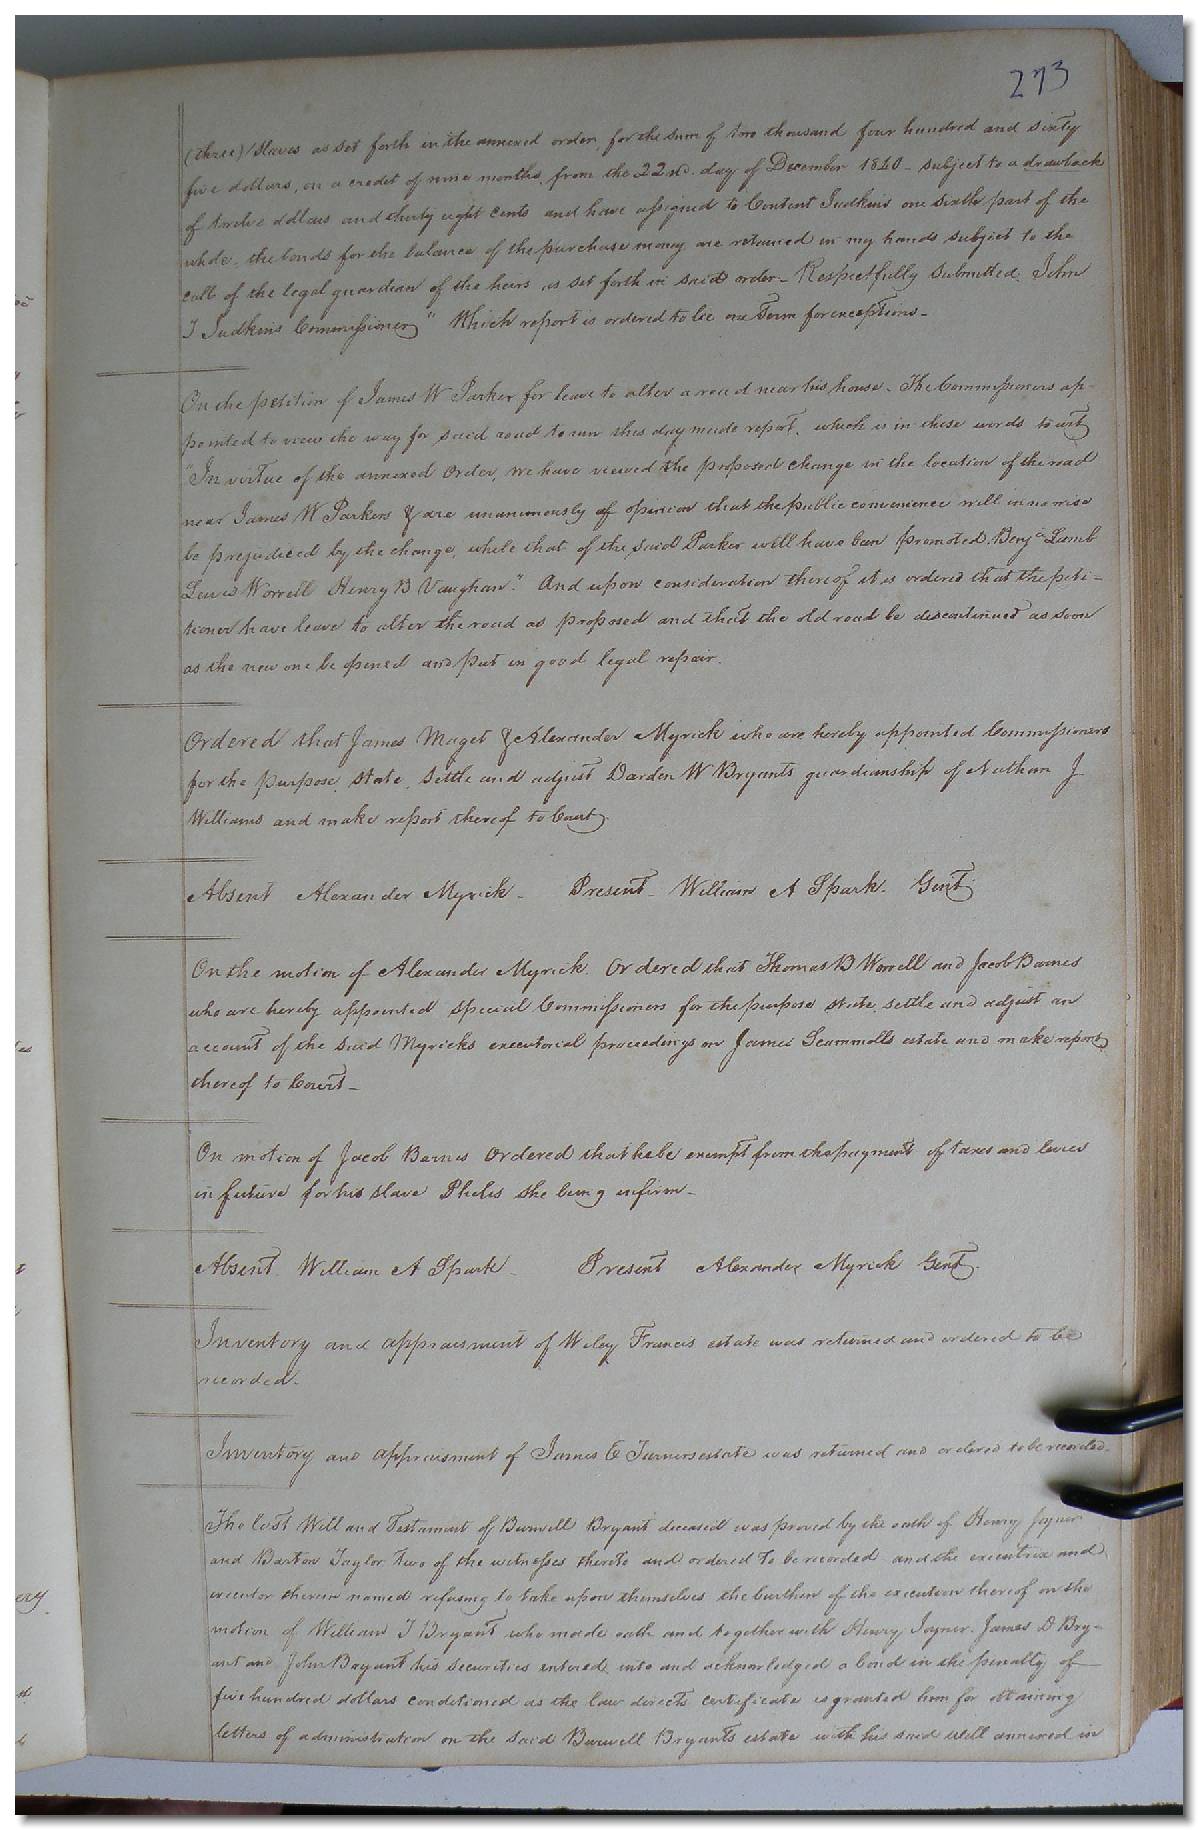 273
(three) slaves as set forth in the annexed order, for the sum of two thousand four hundred and sixty
five dollars, on a credit of nine months, from the 22nd. day of December 1840 - subject to a drawback
of twelve dollars and thirty eight cents and have assigned to Content Judkins one sixth part of the
whole, the bonds for the balance of the purchase money are retained in my hands subject to the
call of the legal guardian of the heirs as set forth in said order - Respectfully Submitted. John
J Judkins Commissioner" Which report is ordered to lie one Term for exceptions -
On the petition of James W Parker for leave to alter a road near his house. The Commissioners ap-
pointed to view the way for said road to run this day made report, which is in these words to wit
"In virtue of the annexed Order, we have viewed the proposed change in the location of the road
near James W Parkers & are unanimously of opinion that the public convenience will in no wise
be prejudiced by the change, while that of the said Parker will have been promoted. Benja Lamb
Lewis Worrell Henry B Vaughan." And upon consideration thereof it is ordered that the peti-
tioner have leave to alter the road as proposed and that the old road be discontinued as soon
as the new one be opened and put in good legal repair.
Ordered that James Maget & Alexander Myrick who are hereby appointed Commissioners
for the purpose, state, settle and adjust Darden W Bryants guardianship of Nathan J
Williams and make report thereof to Court
Absent Alexander Myrick - Present - William A Spark. Gent
On the motion of Alexander Myrick. Ordered that Thomas B Worrell and Jacob Barnes
who are hereby appointed Special Commissioners for the purpose state, settle and adjust an
account of the said Myricks executorial proceedings on James Scammells estate and make report
thereof to Court -
On motion of Jacob Barnes Ordered that he be exempt from the payment of taxes and levies
in future for his slave Phelis she being infirm -
Absent William A Spark - Present Alexander Myrick Gent.
Inventory and appraisment of Wiley Francis estate was returned and ordered to be
recorded.
Inventory and appraisment of James E Turners estate was returned and ordered to be recorded.
The last Will and Testament of Burwell Bryant deceased was proved by the oath of Henry Joyner
and Barton Taylor two of the witnesses thereto and ordered to be recorded and the executrix and
executor therein named refusing to take upon themselves the burthen of the execution thereof on the
motion of William T Bryant who made oath and together with Henry Joyner. James D Bry-
ant and John Bryant his securities entered into and acknowledged a bond in the penalty of
five hundred dollars conditioned as the law directs certificate is granted him for obtaining
letters of administration on the said Burwell Bryants estate with his said will annexed in